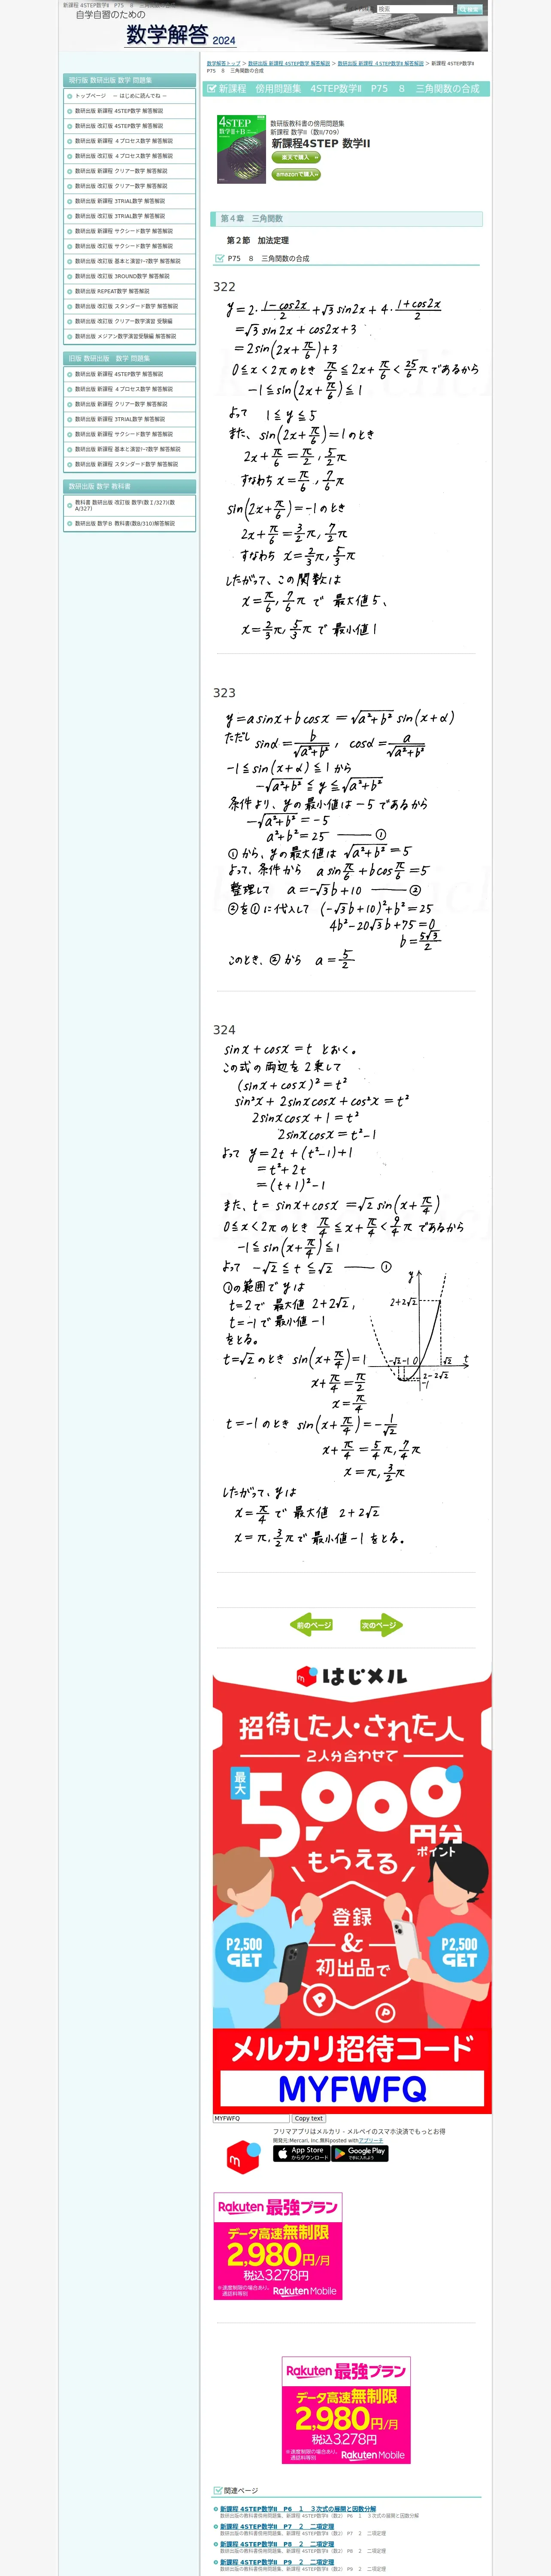 新課程 4STEP数学Ⅱ P75 8 三角関数の合成
自学自習のための
数学解答 2024
検索
検索
数学解答トップ > 数研出版 新課程 4STEP数学 解答解説 > 数研出版 新課程 4STEP数学Ⅱ 解答解説 > 新課程 4STEP数学Ⅱ
P75 8 三角関数の合成
現行版 数研出版 数学 問題集
トップページ － はじめに読んでね －
数研出版 新課程 4STEP数学 解答解説
数研出版 改訂版 4STEP数学 解答解説
数研出版 新課程 4プロセス数学 解答解説
数研出版 改訂版 4プロセス数学 解答解説
数研出版 新課程 クリアー数学 解答解説
数研出版 改訂版 クリアー数学 解答解説
数研出版 新課程 3TRIAL数学 解答解説
数研出版 改訂版 3TRIAL数学 解答解説
数研出版 新課程 サクシード数学 解答解説
数研出版 改訂版 サクシード数学 解答解説
数研出版 改訂版 基本と演習ﾃｰﾏ数学 解答解説
数研出版 改訂版 3ROUND数学 解答解説
数研出版 REPEAT数学 解答解説
数研出版 改訂版 スタンダード数学 解答解説
数研出版 改訂版 クリアー数学演習 受験編
数研出版 メジアン数学演習受験編 解答解説
旧版 数研出版 数学 問題集
数研出版 新課程 4STEP数学 解答解説
数研出版 新課程 4プロセス数学 解答解説
数研出版 新課程 クリアー数学 解答解説
数研出版 新課程 3TRIAL数学 解答解説
数研出版 新課程 サクシード数学 解答解説
数研出版 新課程 基本と演習ﾃｰﾏ数学 解答解説
数研出版 新課程 スタンダード数学 解答解説
数研出版 数学 教科書
教科書 数研出版 改訂版 数学(数Ⅰ/327)(数
A/327)
数研出版 数学B 教科書(数B/310)解答解説
新課程 傍用問題集 4STEP数学Ⅱ P75 8 三角関数の合成
4STEP
数学Ⅱ+B
数研版教科書の傍用問題集
新課程 数学II（数II/709）
新課程4STEP 数学II
楽天で購入
amazonで購入
第４章 三角関数
第２節 加法定理
P75 8 三角関数の合成
322
y=2・(1-cos2x)/2+√3 sin2x+4・(1+cos2x)/2
=√3 sin2x+cos2x+3
=2sin(2x+π/6)+3
0≦x<2πのとき π/6≦2x+π/6<25/6πであるから
-1≦sin(2x+π/6)≦1
よって 1≦y≦5
また、sin(2x+π/6)=1のとき
2x+π/6=π/2, 5/2π
すなわち x=π/6, 7/6π
sin(2x+π/6)=-1のとき
2x+π/6=3/2π, 7/2π
すなわち x=2/3π, 5/3π
したがって、この関数は
x=π/6, 7/6π で 最大値5、
x=2/3π, 5/3π で 最小値1
323
y=asinx+bcosx=√(a²+b²) sin(x+α)
ただし sinα=b/√(a²+b²), cosα=a/√(a²+b²)
-1≦sin(x+α)≦1 から
-√(a²+b²)≦y≦√(a²+b²)
条件より、yの最小値は-5であるから
-√(a²+b²)=-5
a²+b²=25 ——①
①から、yの最大値は √(a²+b²)=5
よって、条件から a sinπ/6+bcosπ/6=5
整理して a=-√3b+10 ——②
②を①に代入して (-√3b+10)²+b²=25
4b²-20√3b+75=0
b=5√3/2
このとき、②から a=5/2
324
sinx+cosx=t とおく。
この式の両辺を2乗して
(sinx+cosx)²=t²
sin²x+2sinxcosx+cos²x=t²
2sinxcosx+1=t²
2sinxcosx=t²-1
よって y=2t+(t²-1)+1
=t²+2t
=(t+1)²-1
また、t=sinx+cosx=√2sin(x+π/4)
0≦x<2πのとき π/4≦x+π/4<9/4πであるから
-1≦sin(x+π/4)≦1
よって -√2≦t≦√2 ——①
①の範囲でyは
t=2で 最大値 2+2√2,
t=-1で最小値-1
をとる。
y
2+2√2
-√2 -1 0 √2 t
2-2√2
-1
t=√2のとき sin(x+π/4)=1
x+π/4=π/2
x=π/4
t=-1のとき sin(x+π/4)=-1/√2
x+π/4=5/4π, 7/4π
x=π, 3/2π
したがって、yは
x=π/4 で 最大値 2+2√2
x=π, 3/2πで最小値-1をとる。
前のページ 次のページ
はじメル
招待した人・された人
2人分合わせて
最大
5,000円分
ポイント
もらえる
登録
&
初出品で
P2,500
GET
P2,500
GET
メルカリ招待コード
MYFWFQ
MYFWFQ Copy text
フリマアプリはメルカリ - メルペイのスマホ決済でもっとお得
開発元:Mercari, Inc.無料posted withアプリーチ
App Store
からダウンロード
Google Play
で手に入れよう
Rakuten 最強プラン
データ高速無制限
2,980円/月
税込3,278円
※速度制限の場合あり。
通話料等別
Rakuten Mobile
Rakuten 最強プラン
データ高速無制限
2,980円/月
税込3,278円
※速度制限の場合あり。
通話料等別
Rakuten Mobile
関連ページ
新課程 4STEP数学Ⅱ P6 １ ３次式の展開と因数分解
数研出版の教科書傍用問題集、新課程 4STEP数学Ⅱ（数2） P6 １ ３次式の展開と因数分解
新課程 4STEP数学Ⅱ P7 ２ 二項定理
数研出版の教科書傍用問題集、新課程 4STEP数学Ⅱ（数2） P7 ２ 二項定理
新課程 4STEP数学Ⅱ P8 ２ 二項定理
数研出版の教科書傍用問題集、新課程 4STEP数学Ⅱ（数2） P8 ２ 二項定理
新課程 4STEP数学Ⅱ P9 ２ 二項定理
数研出版の教科書傍用問題集、新課程 4STEP数学Ⅱ（数2） P9 ２ 二項定理